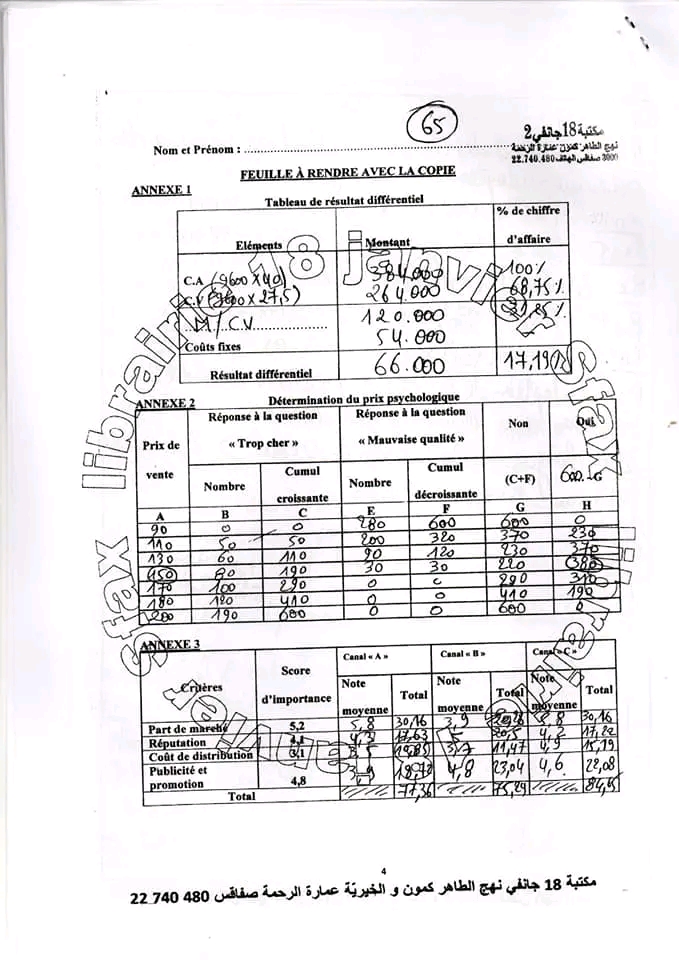 65
مكتبة 18 جانفي 2
نهج الطاهر كمون عمارة الرحمة
3000 صفاقس الهاتف 22.740.480
Nom et Prénom :
FEUILLE À RENDRE AVEC LA COPIE
ANNEXE 1
Tableau de résultat différentiel
Eléments Montant % de chiffre d'affaire
C.A (9600 x 40) 384.000 100%
C.V (9600 x 27,5) 264.000 68,75%
M/CV 120.000 31,25%
Coûts fixes 54.000
Résultat différentiel 66.000 17,19%
ANNEXE 2 Détermination du prix psychologique
Prix de vente Réponse à la question « Trop cher » Réponse à la question « Mauvaise qualité » Non Oui
Nombre Cumul croissante Nombre Cumul décroissante (C+F) 600 - G
A B C E F G H
90 0 0 280 600 600 0
110 50 50 200 320 370 230
130 60 110 90 120 230 370
150 80 190 30 30 220 380
170 100 290 0 0 290 310
180 120 410 0 0 410 190
200 190 600 0 0 600 0
ANNEXE 3
Critères Score d'importance Canal « A » Canal « B » Canal « C »
Note moyenne Total Note moyenne Total Note moyenne Total
Part de marché 5,2 5,8 30,16 3,9 5,8 30,16
Réputation 4,1 4,3 17,63 5 20,5 4,2 17,22
Coût de distribution 3,1 3,5 3,7 11,47 4,9 15,19
Publicité et promotion 4,8 3,9 18,72 4,8 23,04 4,6 22,08
Total 77,36 75,29
4
مكتبة 18 جانفي نهج الطاهر كمون و الخيريّة عمارة الرحمة صفاقس 480 740 22
librairie 18 janvier sfax
librairie 18 janvier sfax